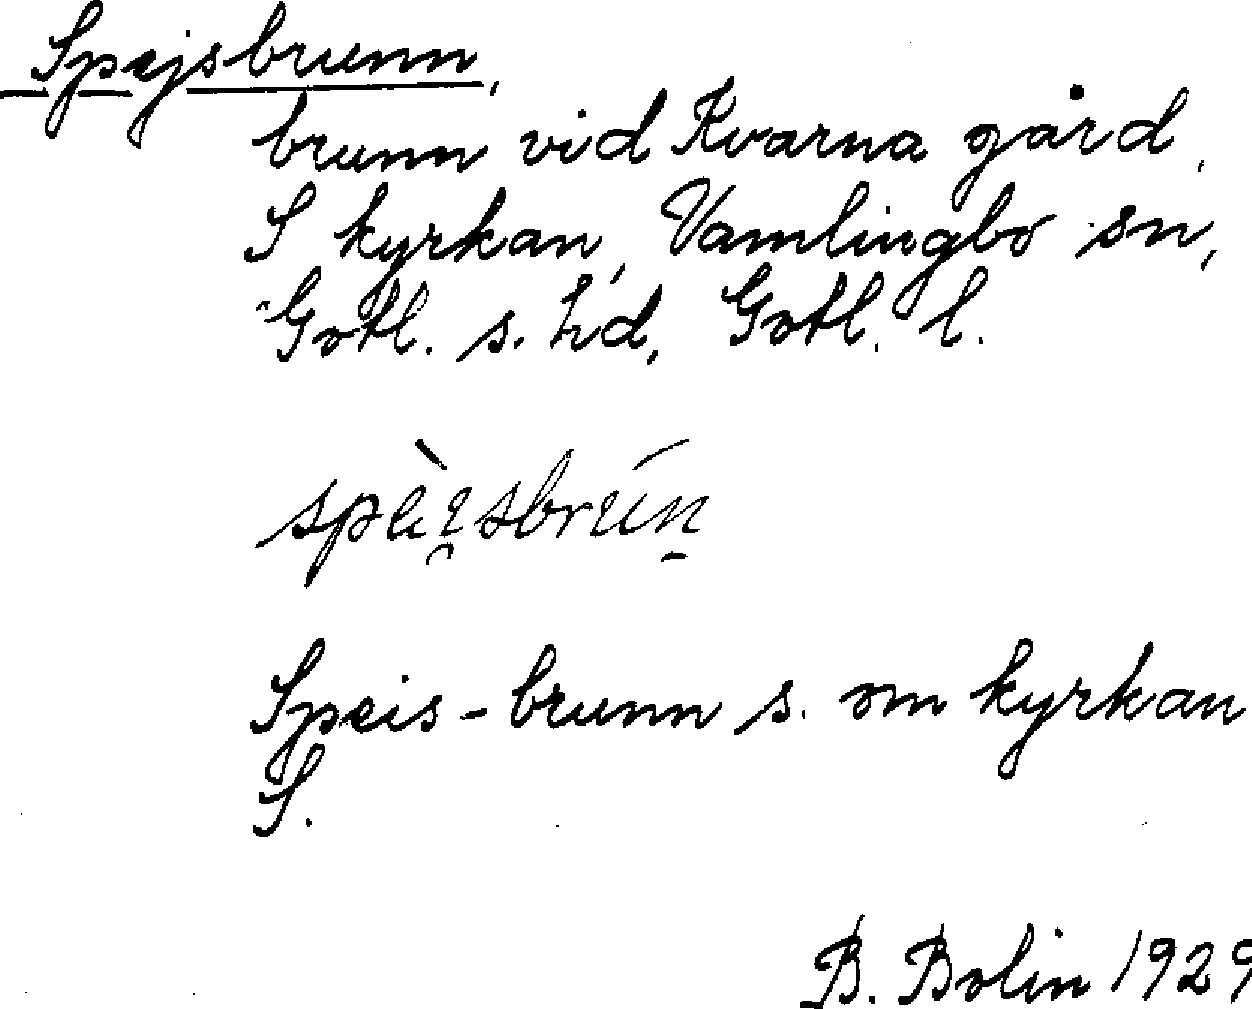 Spejsbrunn,
brunn vid Kvarna gård,
S kyrkan, Vamlingbo sn,
Gotl. s. hd, Gotl. l.
Speis-brunn s. om kyrkan
S.
B. Bolin 1929